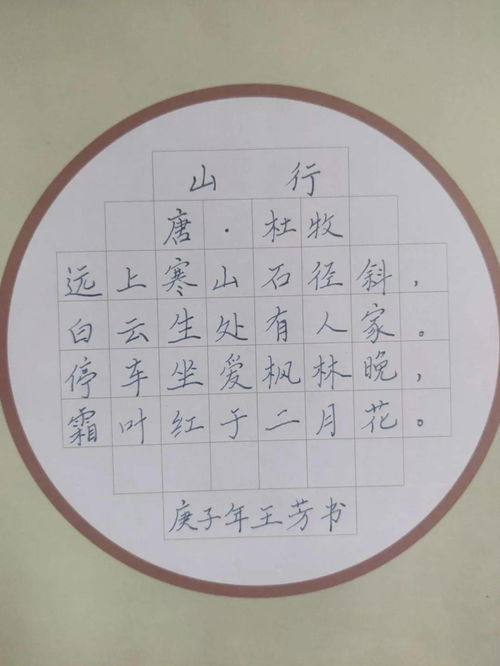 山 行
唐·杜牧
远上寒山石径斜，
白云生处有人家。
停车坐爱枫林晚，
霜叶红于二月花。
庚子年王芳书